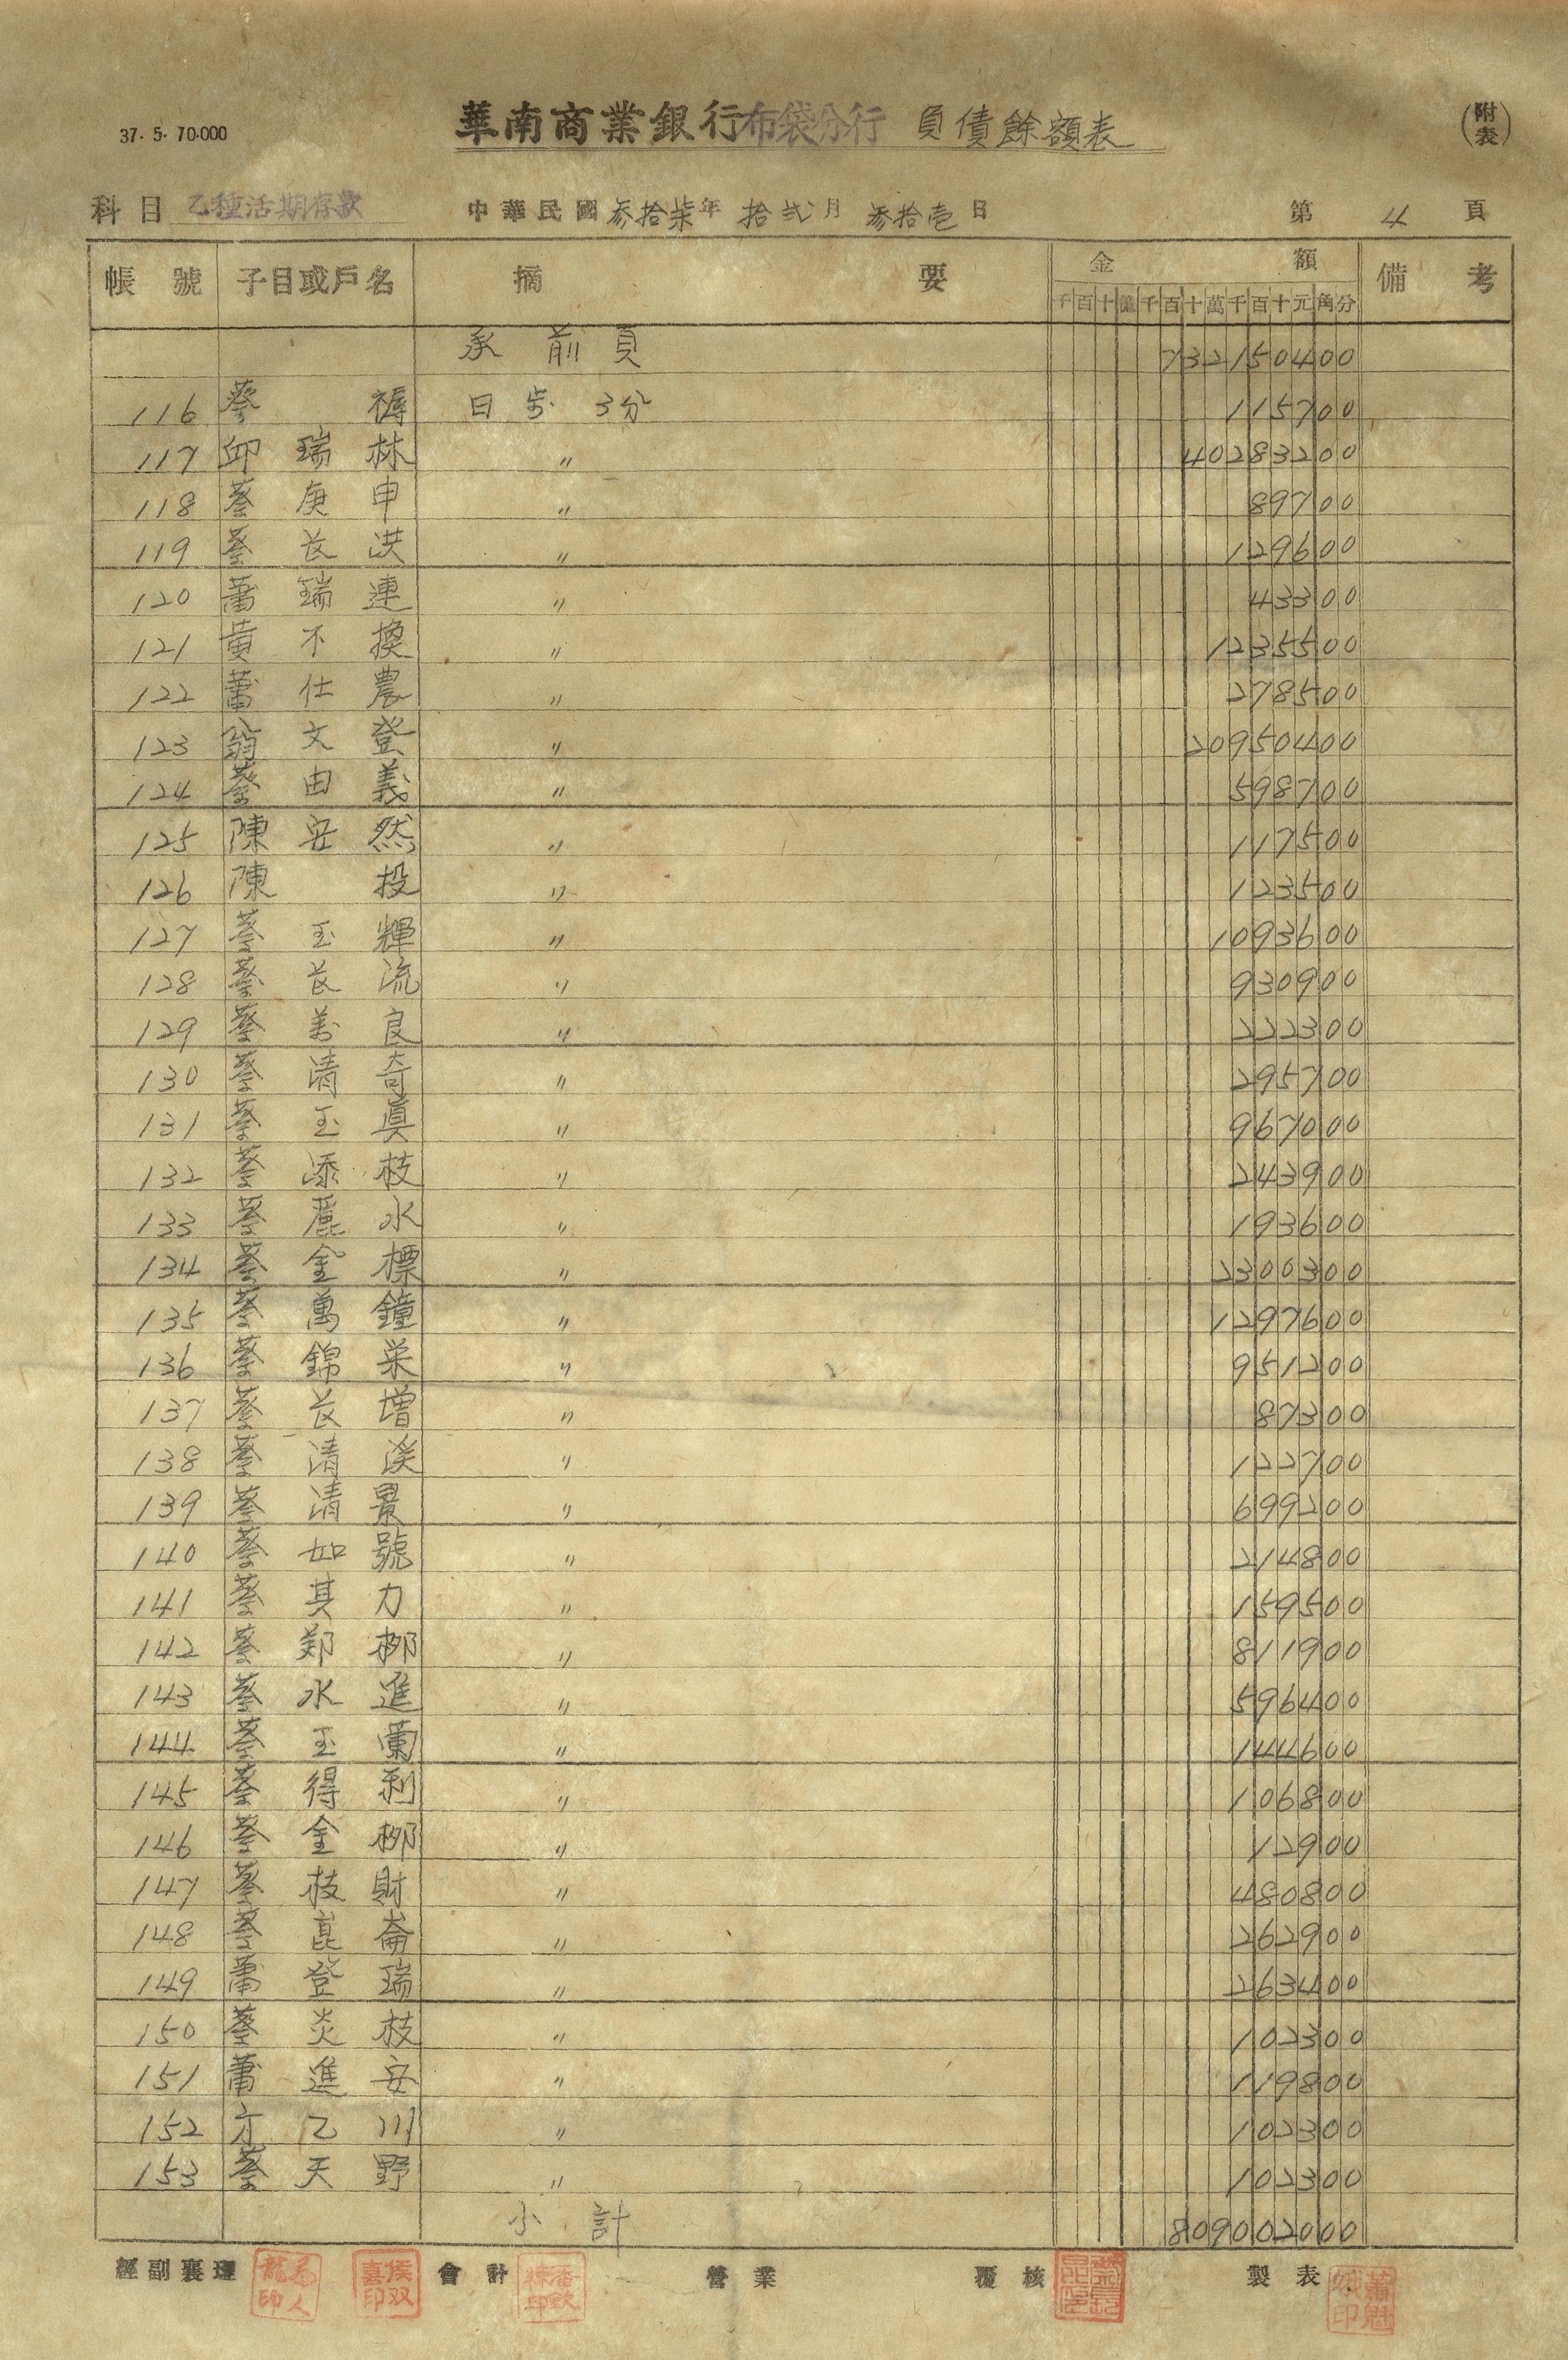 37.5.70.000
華南商業銀行布袋分行 負債餘額表
(附表)
科目 乙種活期存款 中華民國叁拾柒年 拾弍月 叁拾壱日 第 4 頁
帳號 子目或戶名 摘要 金額 備考
千百十億千百十萬千百十元角分
承前頁 732150400
116 蔡 褥 日步 3分 115700
117 邱瑞林 〃 40283200
118 蔡庚申 〃 89700
119 蔡長洪 〃 129600
120 蕭瑞連 〃 43300
121 黄不換 〃 1235500
122 蕭仕農 〃 278500
123 翁文登 〃 20950400
124 蔡由義 〃 598700
125 陳安然 〃 117500
126 陳 投 〃 123500
127 蔡玉輝 〃 1093600
128 蔡長流 〃 930900
129 蔡善良 〃 222300
130 蔡清奇 〃 295700
131 蔡玉真 〃 967000
132 蔡添枝 〃 243900
133 蔡麗水 〃 193600
134 蔡金標 〃 2300300
135 蔡萬鐘 〃 1297600
136 蔡錦栄 〃 951200
137 蔡長增 〃 87300
138 蔡清溪 〃 122700
139 蔡清景 〃 699200
140 蔡如號 〃 214800
141 蔡其力 〃 159500
142 蔡鄭柳 〃 811900
143 蔡水進 〃 596400
144 蔡玉蘭 〃 144600
145 蔡得利 〃 106800
146 蔡金柳 〃 12900
147 蔡枝財 〃 480800
148 蔡崑崙 〃 262900
149 蕭登瑞 〃 263400
150 蔡炎枝 〃 102300
151 蕭進安 〃 119800
152 方乙川 〃 102300
153 蔡天野 〃 102300
小計 809002000
經副襄理 會計 營業 覆核 製表